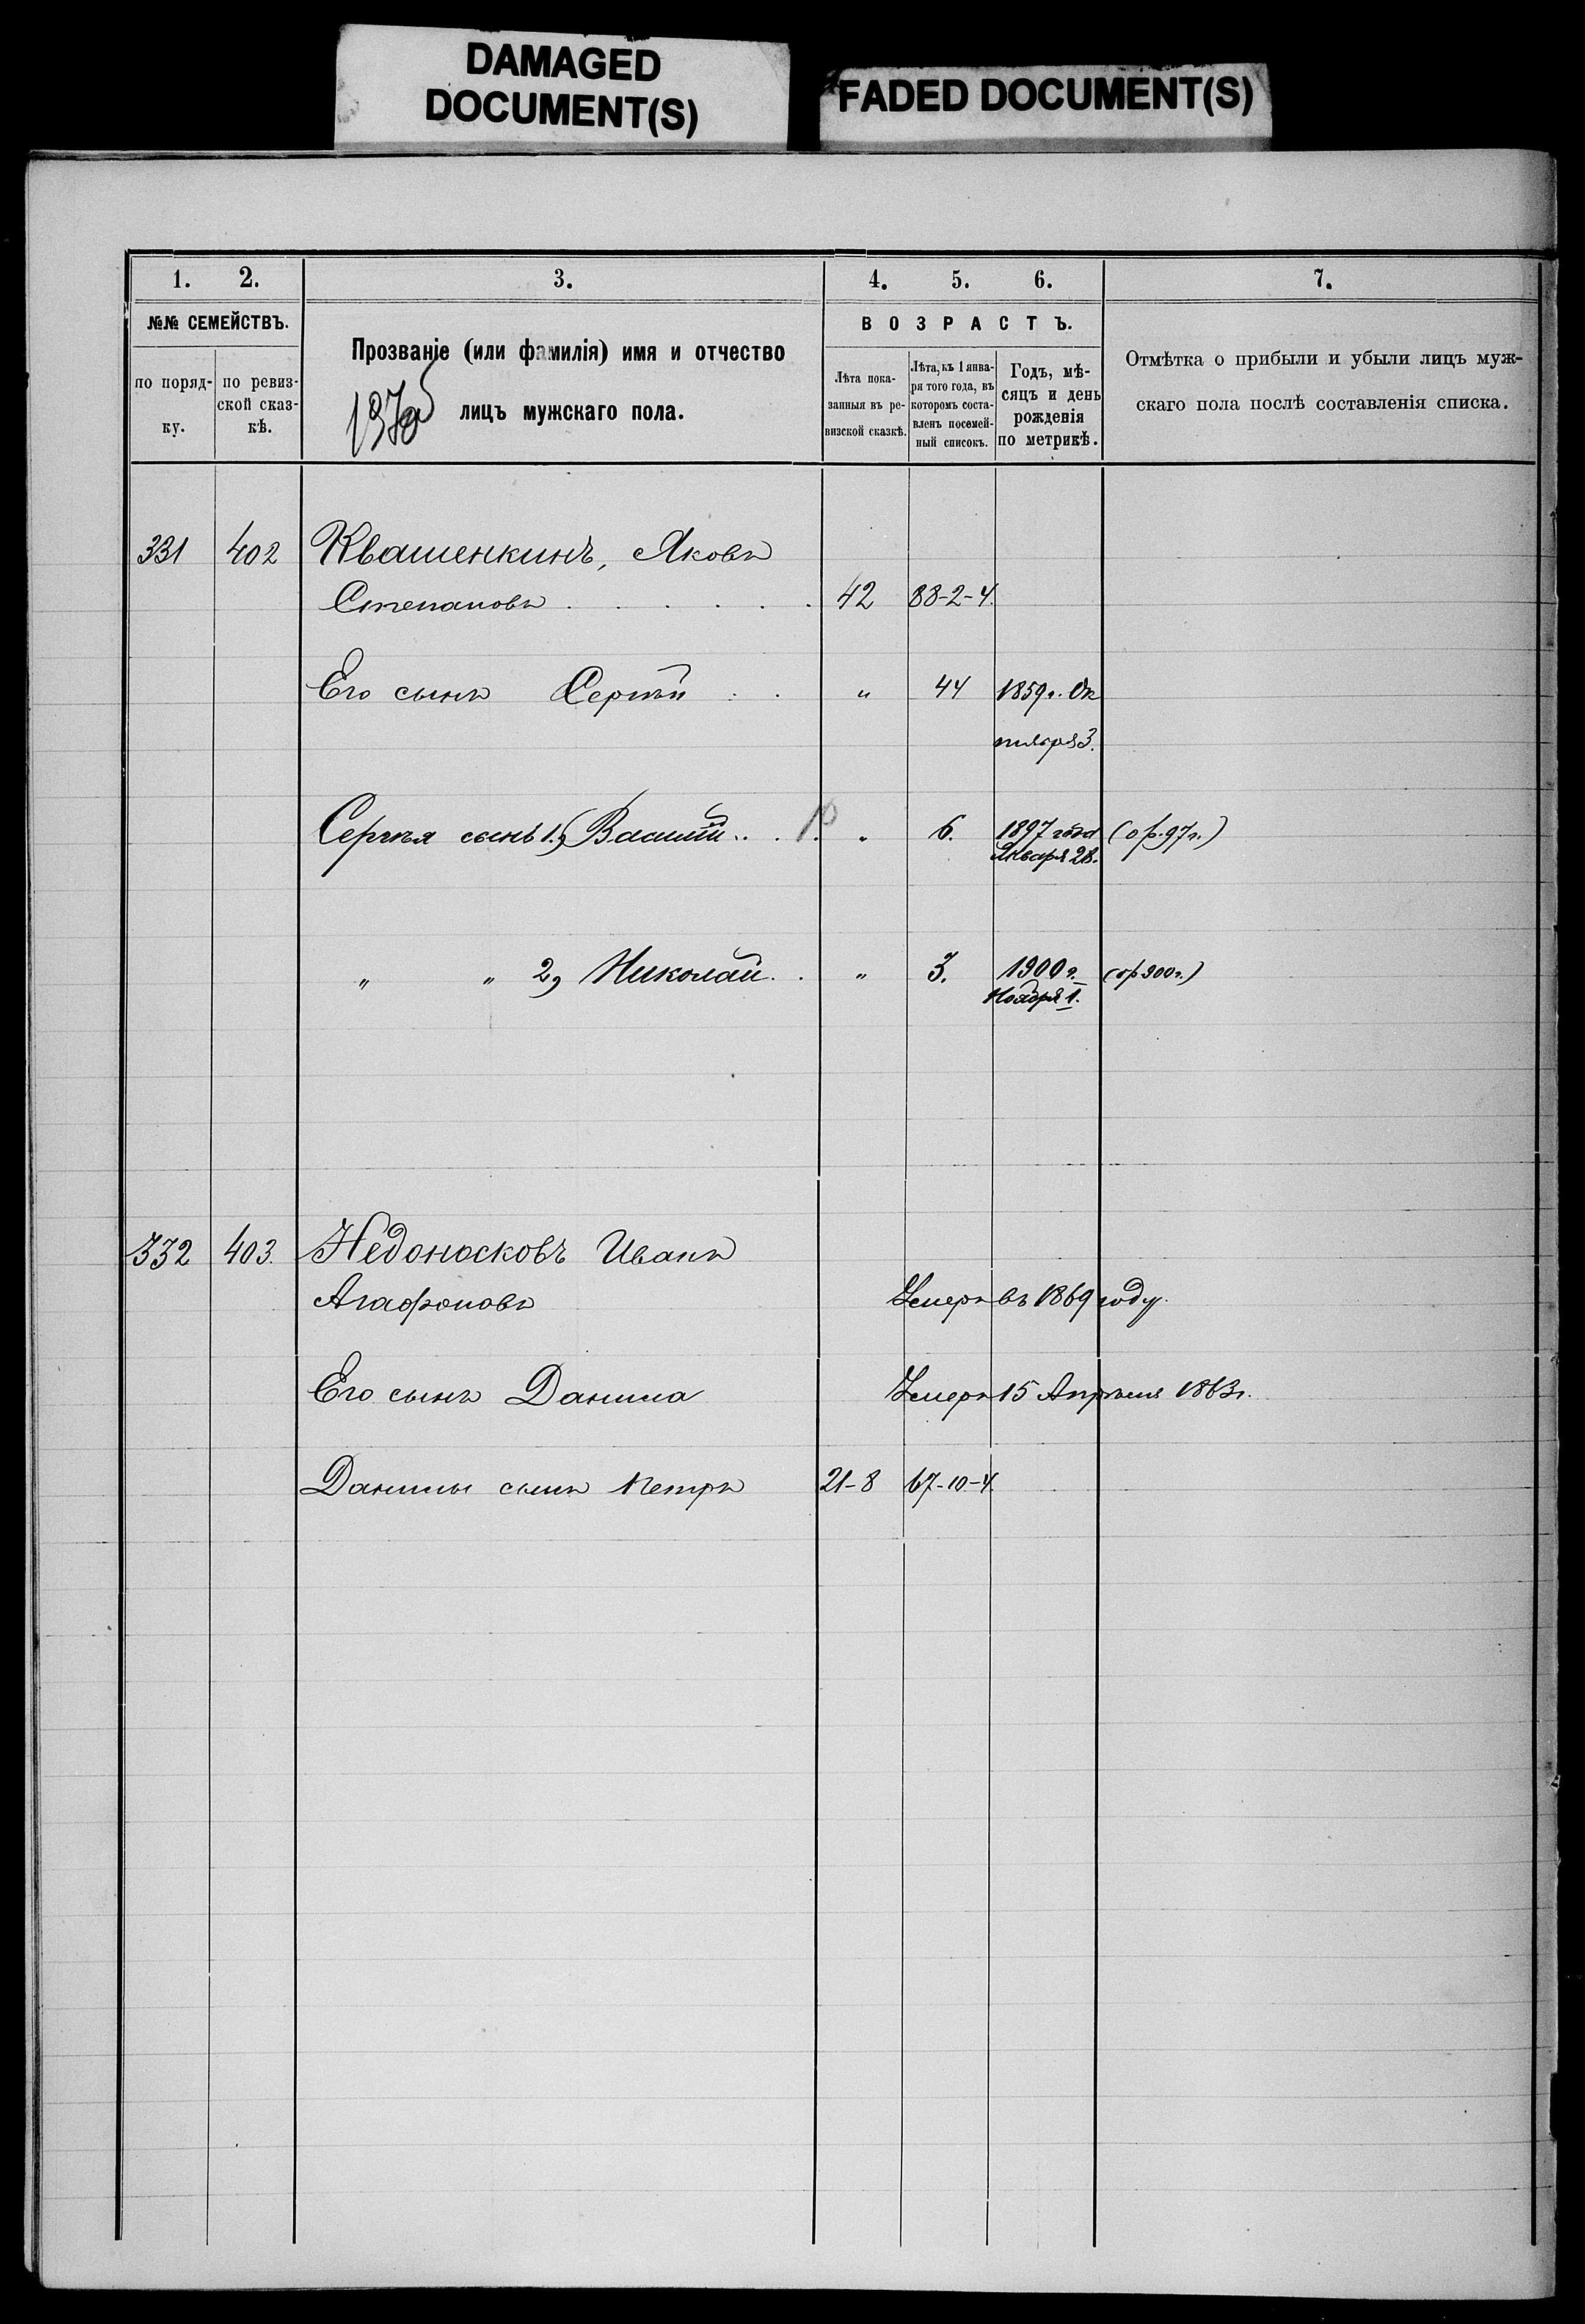 DAMAGED
DOCUMENT(S)
FADED DOCUMENT(S)
1. 2. 3. 4. 5. 6. 7.
№№ СЕМЕЙСТВЪ.
по поряд-
ку.
по ревиз-
ской сказ-
кѣ.
Прозваніе (или фамилія) имя и отчество
лицъ мужскаго пола.
ВОЗРАСТЪ.
Лѣта пока-
занныя въ ре-
визской сказкѣ.
Лѣта, къ 1 янва-
ря того года, въ
которомъ соста-
вленъ посемей-
ный списокъ.
Годъ, мѣ-
сяцъ и день
рожденія
по метрикѣ.
Отмѣтка о прибыли и убыли лицъ муж-
скаго пола послѣ составленія списка.
331 402 Квашенкинъ, Яковъ
Степановъ . . . . . 42 88-2-4.
Его сынъ Сергѣй . . „ 44 1859 г. Ок
тября 3.
Сергѣя сынъ 1, Василій . . . „ 6. 1897 года (ор. 97 г.)
Января 28.
„ „ 2, Николай . . „ 3. 1900 г. (ор 900 г.)
Ноября 1.
332 403. Недоносковъ Иванъ
Агафоновъ Умеръ въ 1869 году.
Его сынъ Данила Умеръ 15 Апрѣля 1863 г.
Данилы сынъ Петръ 21-8 67-10-4.